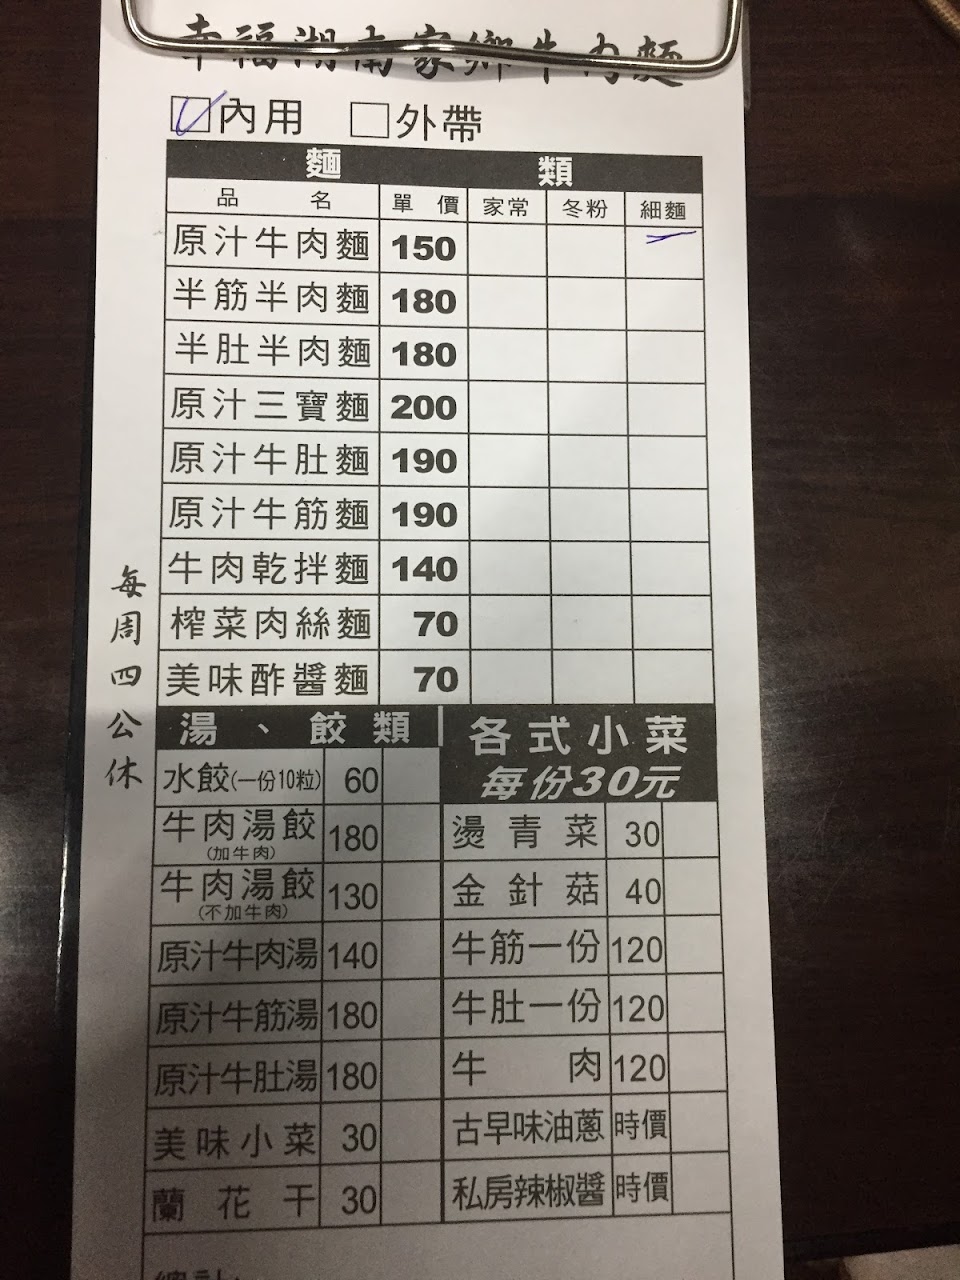 幸福湖南家鄉牛肉麵
內用 外帶
麵 類
品 名 單 價 家常 冬粉 細麵
原汁牛肉麵 150
半筋半肉麵 180
半肚半肉麵 180
原汁三寶麵 200
原汁牛肚麵 190
原汁牛筋麵 190
牛肉乾拌麵 140
榨菜肉絲麵 70
美味酢醬麵 70
每周四公休
湯、餃類
水餃(一份10粒) 60
牛肉湯餃 180
(加牛肉)
牛肉湯餃 130
(不加牛肉)
原汁牛肉湯 140
原汁牛筋湯 180
原汁牛肚湯 180
美味小菜 30
蘭花干 30
各式小菜
每份30元
燙青菜 30
金針菇 40
牛筋一份 120
牛肚一份 120
牛肉 120
古早味油蔥 時價
私房辣椒醬 時價
總計: